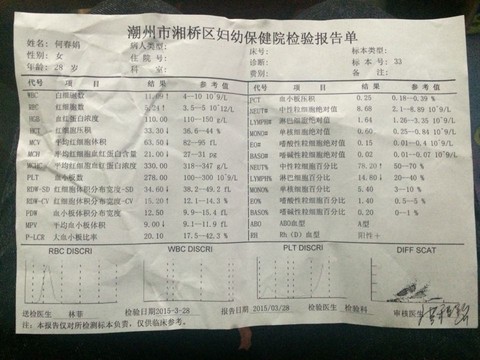 潮州市湘桥区妇幼保健院检验报告单
姓名: 何春娟 病人类型: 床号: 标本类型:
性别: 女 住院号: 诊断: 标本号: 33
年龄: 28 岁 科室: 费别: 备注:
代号 项目 结果 参考值
WBC 白细胞数 4—10 10^9/L
RBC 红细胞数 5.24↑ 3.5—5 10^12/L
HGB 血红蛋白浓度 110.00 110—150 g/L
HCT 红细胞压积 33.30↓ 36.6—44 %
MCV 平均红细胞体积 63.50↓ 82—95 fL
MCH 平均红细胞血红蛋白含量 21.00↓ 27—31 pg
MCHC 平均红细胞血红蛋白浓度 330.00 318—347 g/L
PLT 血小板数 278.00 100—300 10^9/L
RDW-SD 红细胞体积分布宽度-SD 34.60↓ 38.2—49.2 fL
RDW-CV 红细胞体积分布宽度-CV 15.20↑ 12.1—14.3 %
PDW 血小板体积分布宽度 12.50 9.9—15.4 fL
MPV 平均血小板体积 9.00↓ 9.1—11.9 fL
P-LCR 大血小板比率 20.10 17.5—42.3 %
PCT 血小板压积 0.25 0.18—0.39 %
NEUT# 中性粒细胞绝对值 8.68 2.1—8.89 10^9/L
LYMPH# 淋巴细胞绝对值 1.64 1.26—3.35 10^9/L
MONO# 单核细胞绝对值 0.60 0.25—0.84 10^9/L
EO# 嗜酸性粒细胞绝对值 0.15 0.01—0.4 10^9/L
BASO# 嗜碱性粒细胞绝对值 0.02 0.01—0.07 10^9/L
NEUT% 中性粒细胞百分比 78.20↑ 50—70 %
LYMPH% 淋巴细胞百分比 14.80↓ 20—40 %
MONO% 单核细胞百分比 5.40 3—10 %
EO% 嗜酸性粒细胞百分比 1.40 0.5—5 %
BASO% 嗜碱性粒细胞百分比 0.20 0—1 %
ABO ABO血型 A型
RH Rh(D)血型 阳性+
RBC DISCRI WBC DISCRI PLT DISCRI DIFF SCAT
送检医生 林菲 检验日期2015-3-28 报告日期 2015/03/28 检验医生 检验科 审核医生
注:本报告仅对所检测标本负责,仅供临床参考。